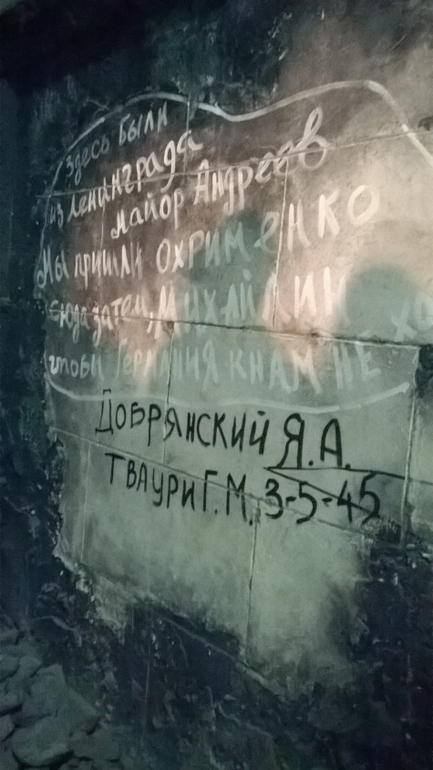 Здесь были
из Ленинграда
майор Андреев
Мы пришли ОХРИМЕНКО
сюда затем, МИХАЙЛИН
чтобы ГЕРМАНИЯ К НАМ НЕ ХО
ДОБРЯНСКИЙ Я.А.
ТВАУРИ Г.М. 3-5-45